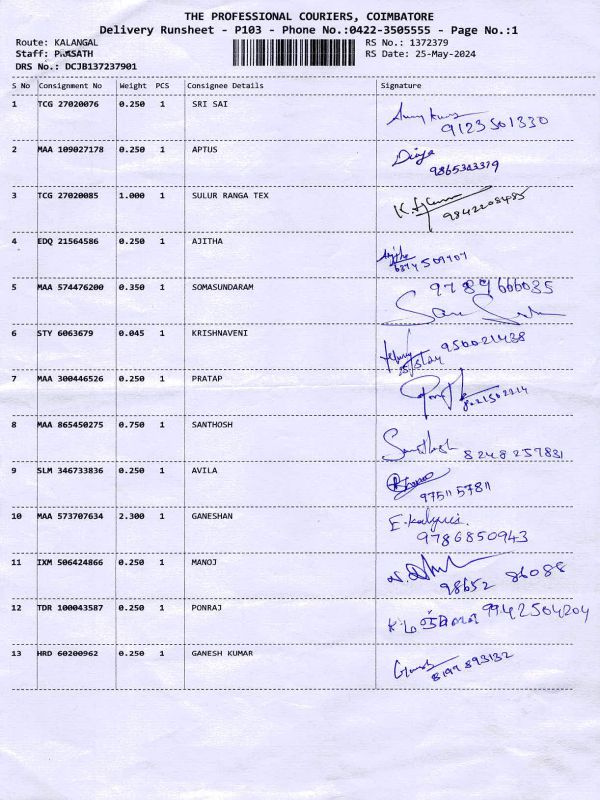 THE PROFESSIONAL COURIERS, COIMBATORE
Delivery Runsheet - P103 - Phone No.:0422-3505555 - Page No.:1
Route: KALANGAL RS No.: 1372379
Staff: PRASATH RS Date: 25-May-2024
DRS No.: DCJB137237901
S No Consignment No Weight PCS Consignee Details Signature
1 TCG 27020076 0.250 1 SRI SAI
9123501330
2 MAA 109027178 0.250 1 APTUS Divya
9865343379
3 TCG 27020085 1.000 1 SULUR RANGA TEX
9842208485
4 EDQ 21564586 0.250 1 AJITHA
5 MAA 574476200 0.350 1 SOMASUNDARAM 9789666035
6 STY 6063679 0.045 1 KRISHNAVENI
950021438
7 MAA 300446526 0.250 1 PRATAP
8 MAA 865450275 0.750 1 SANTHOSH
Santhosh 8248257831
9 SLM 346733836 0.250 1 AVILA
9751157811
10 MAA 573707634 2.300 1 GANESHAN
9786850943
11 IXM 506424866 0.250 1 MANOJ
98652 86088
12 TDR 100043587 0.250 1 PONRAJ 9942504204
13 HRD 60200962 0.250 1 GANESH KUMAR
Ganesh 8199893132